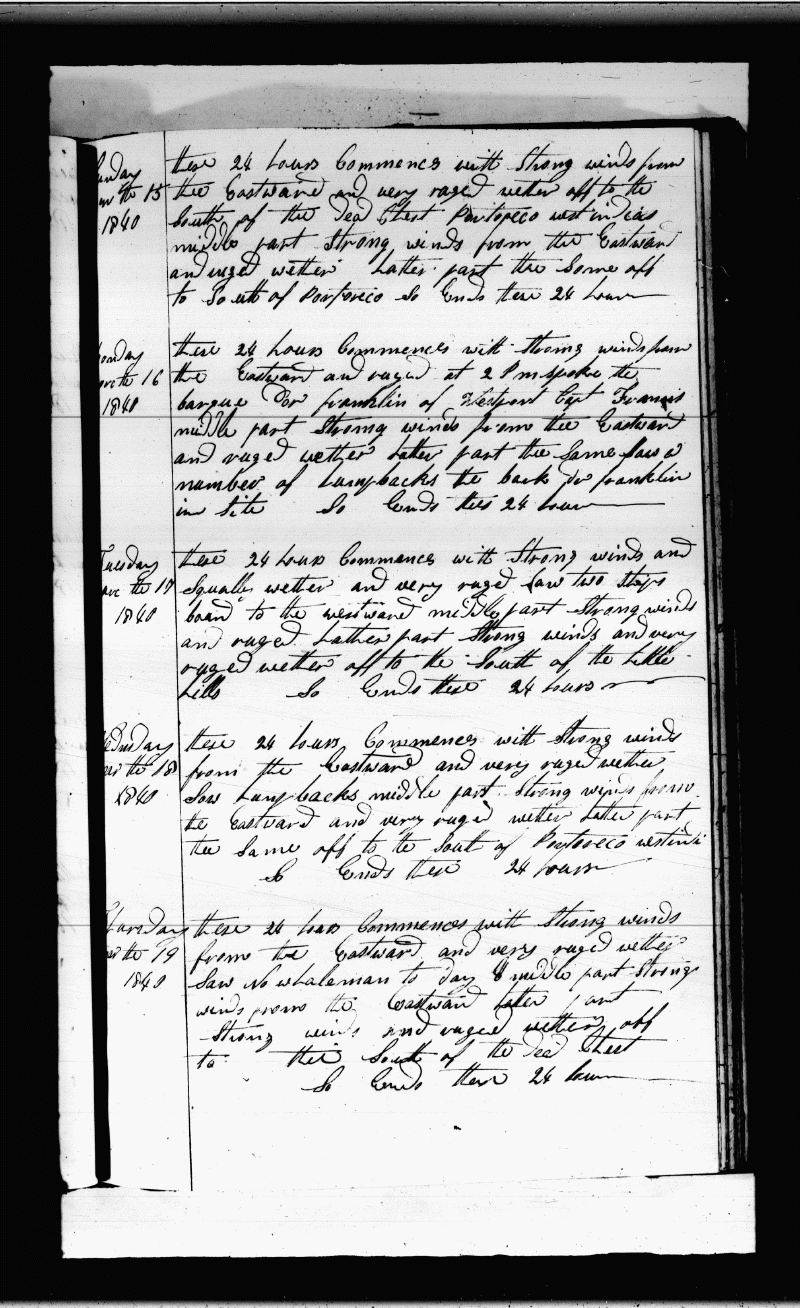 these 24 hours Commences with Strong winds from
the Eastward and very ruged wether off to the
South of the Dead Chest Portoreco west indias
middle part Strong winds from the Eastward
and ruged wether Latter part the Same off
to South of Portoreco So Ends these 24 hours
15
1840
these 24 hours Commences with Strong winds from
the Eastward and ruged at 2 Pm spoke the
barque Dor franklin of Westport Capt Francis
middle part Strong winds from the Eastward
and ruged wether Latter part the Same Saw a
number of humpbacks the bark Dor franklin
in Site So Ends thes 24 hours
onday
16
1840
these 24 hours Commences with Strong winds and
Squally wether and very ruged Saw two Ships
boand to the westward middle part Strong winds
and ruged Latter part Strong winds and very
ruged wether off to the South of the Little
hills So Ends these 24 hours
Tuesday
the 17
1840
these 24 hours Commences with Strong winds
from the Eastward and very ruged wether
Saw humpbacks middle part Strong winds from
the Eastward and very ruged wether Latter part
the Same off to the South of Portoreco westindi
So Ends these 24 hours
the 18
1840
these 24 hours Commences with Strong winds
from the Eastward and very ruged wether
Saw No whaleman to day & middle part Strong
winds from the Eastward Latter part
Strong winds and ruged wether off
to the South of the Dead Chest
So Ends these 24 hours
the 19
1840